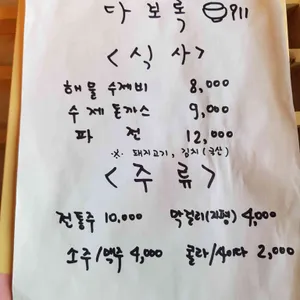 다보록 911
<식사>
해물수제비 8,000
수제돈까스 9,000
파전 12,000
※. 돼지고기, 김치(국산)
<주류>
전통주 10,000 막걸리(지평) 4,000
소주/맥주 4,000 콜라/사이다 2,000